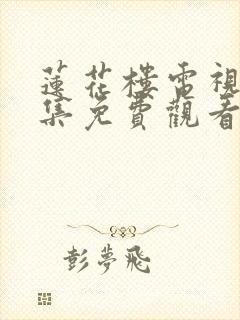 蓮花樓電視
集免費觀看
彭夢飛